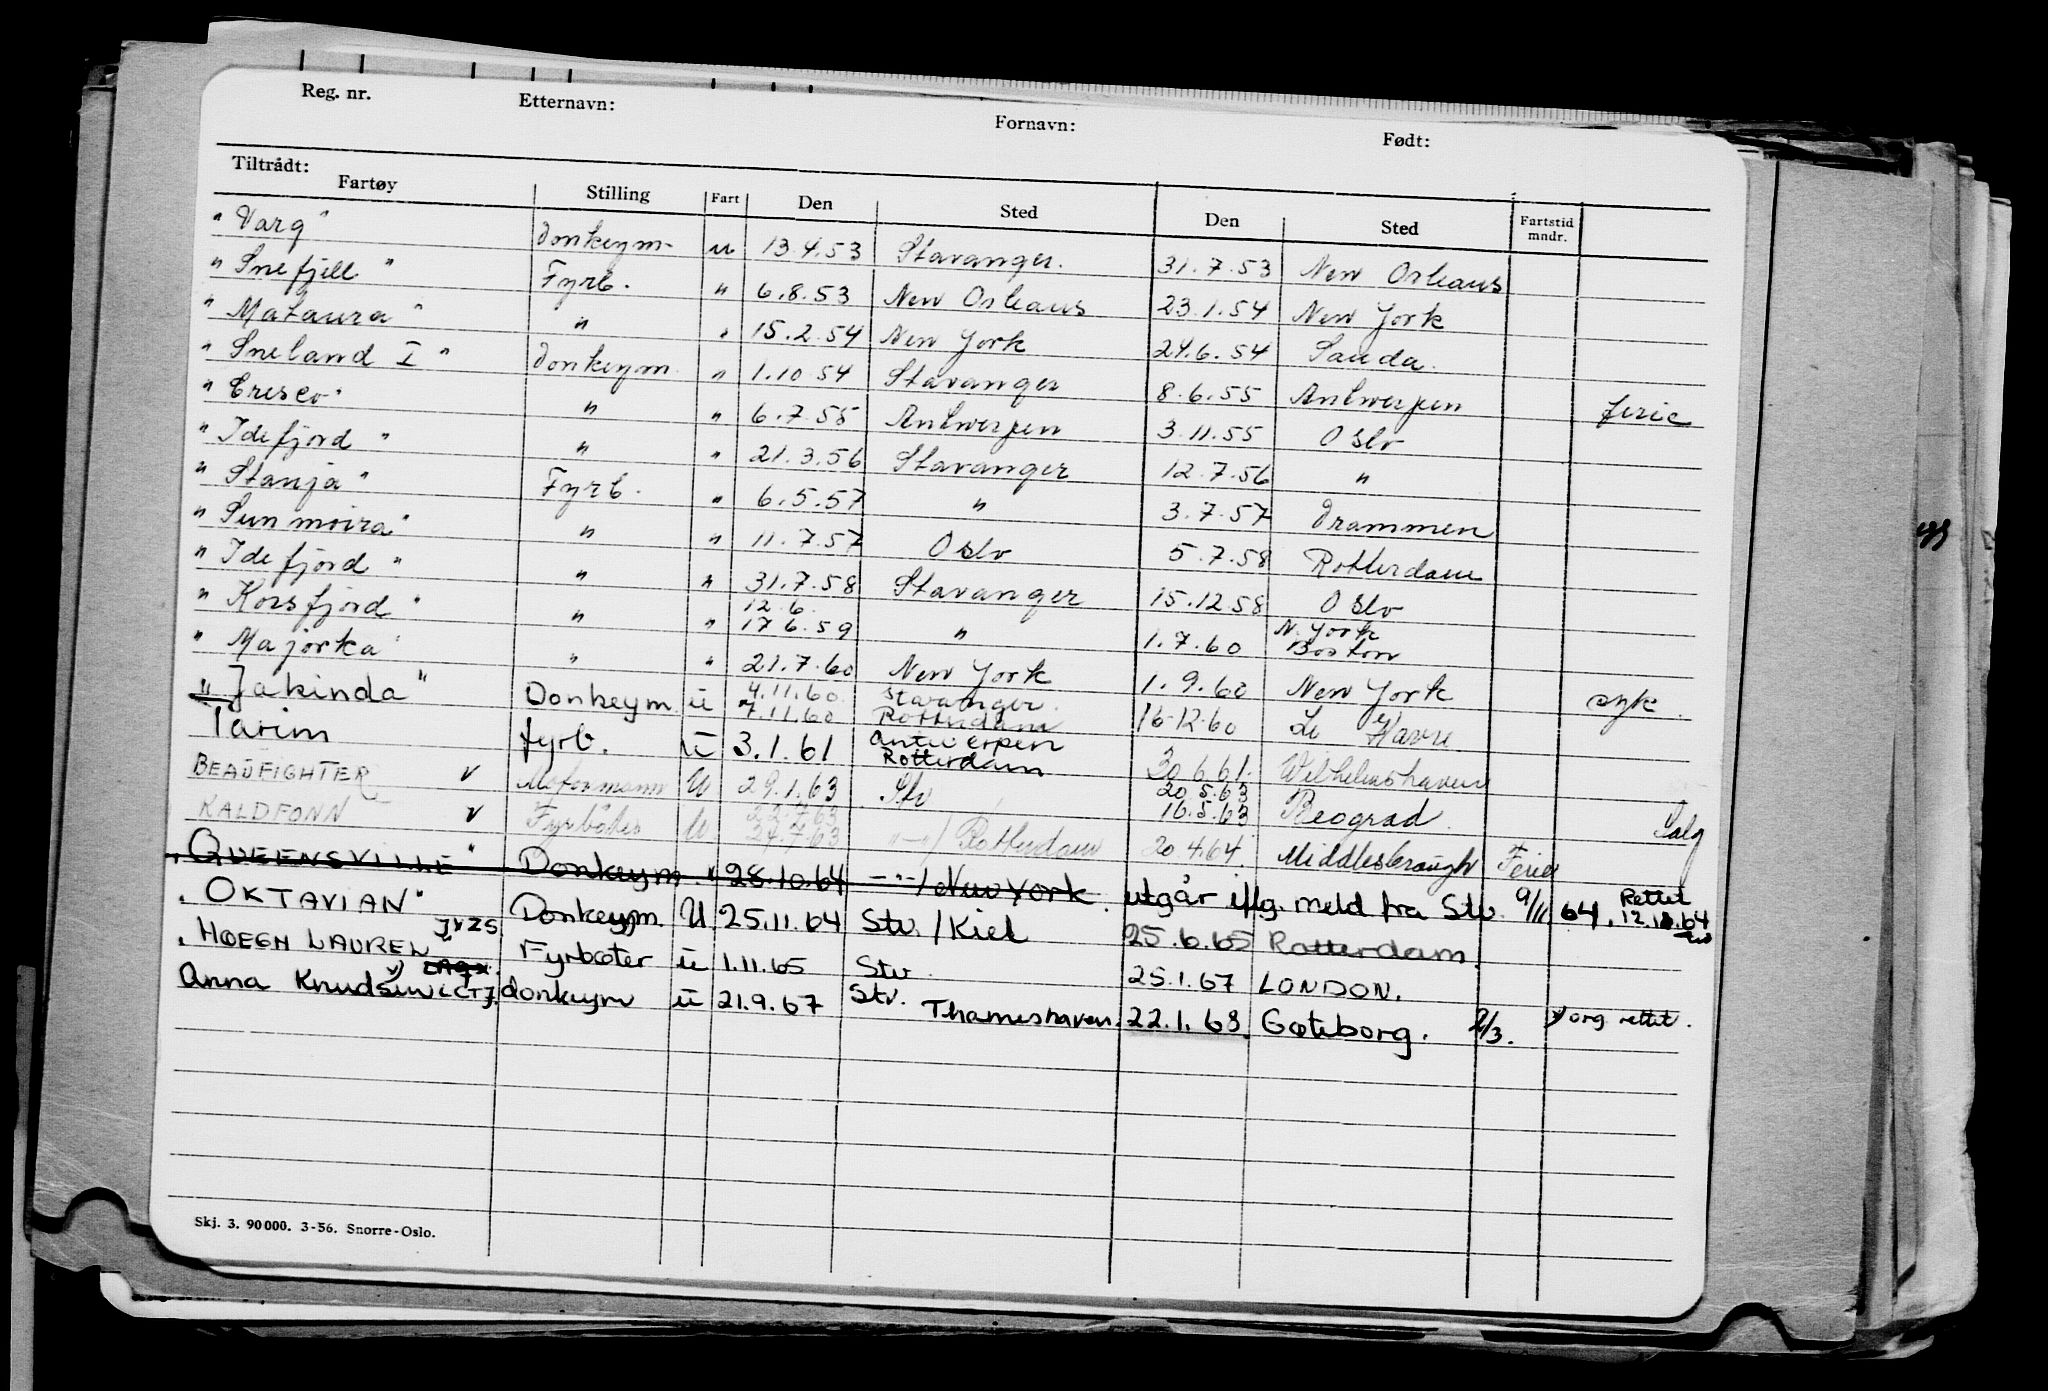 Reg. nr. Etternavn: Fornavn: Født:
Tiltrådt:
Fartøy Stilling Fart Den Sted Den Sted Fartstid mndr.
" Varg " Donkeym. u 13.4.53 Stavanger. 31.7.53 New Orleans
" Snefjell " Fyrb. " 6.8.53 New Orleans 23.1.54 New York
" Mataura " " " 15.2.54 New York 24.6.54 Sauda.
" Sneland I " Donkeym. " 1.10 54 Stavanger 8.6.55 Antwerpen ferie
" Cresco " " " 6.7.55 Antwerpen 3.11.55 Oslo
" Idefjord " " " 21.3.56 Stavanger 12.7.56 "
" Stanja " Fyrb. " 6.5.57 " 3.7.57 Drammen
" Sunmoira " " " 11.7.57 Oslo 5.7.58 Rotterdam
" Idefjord " " " 31.7.58 Stavanger 15.12.58 Oslo
" Korsfjord " " " 12.6. 17 6.59 " 1.7.60 N. York Boston
" Majorka " " " 21.7.60 New York 1.9.60 New York syk.
" Jakinda " Donkeym u 4.11.60 7.11.60 Stavanger. Rotterdam 16.12.60 Le Havre
Tarim fyrb. u 3.1.61 Antwerpen Rotterdam 30 6.61. Wilhelmshaven
BEAUFIGHTER v Motormann U 29.1.63 Stv 20 5.63 16.5.63 Beograd Salg
KALDFONN v Fyrbøter U. 22.7.63 24.7.63 "-"/Rotterdam 20 4.64. Middlesbrough Ferie
" QUEENSVILLE " Donkeym. " 28.10.64 -"-/New York. utgår iflg. meld fra Stv. 9/11 64. Rettet 12.11.64
" OKTAVIAN " Donkeym. U 25.11.64 Stv./Kiel 25.6.65 Rotterdam.
" HØEGH LAUREL " JXZS Fyrbøter u 1.11.65 Stv. 25.1.67 LONDON.
Anna Knudsen LCTJ. donkeym u 21.9.67 Stv. Thameshaven. 22.1.68 Gøteborg. 2/3. org. rettet.
Skj. 3. 90 000. 3-56. Snorre-Oslo.